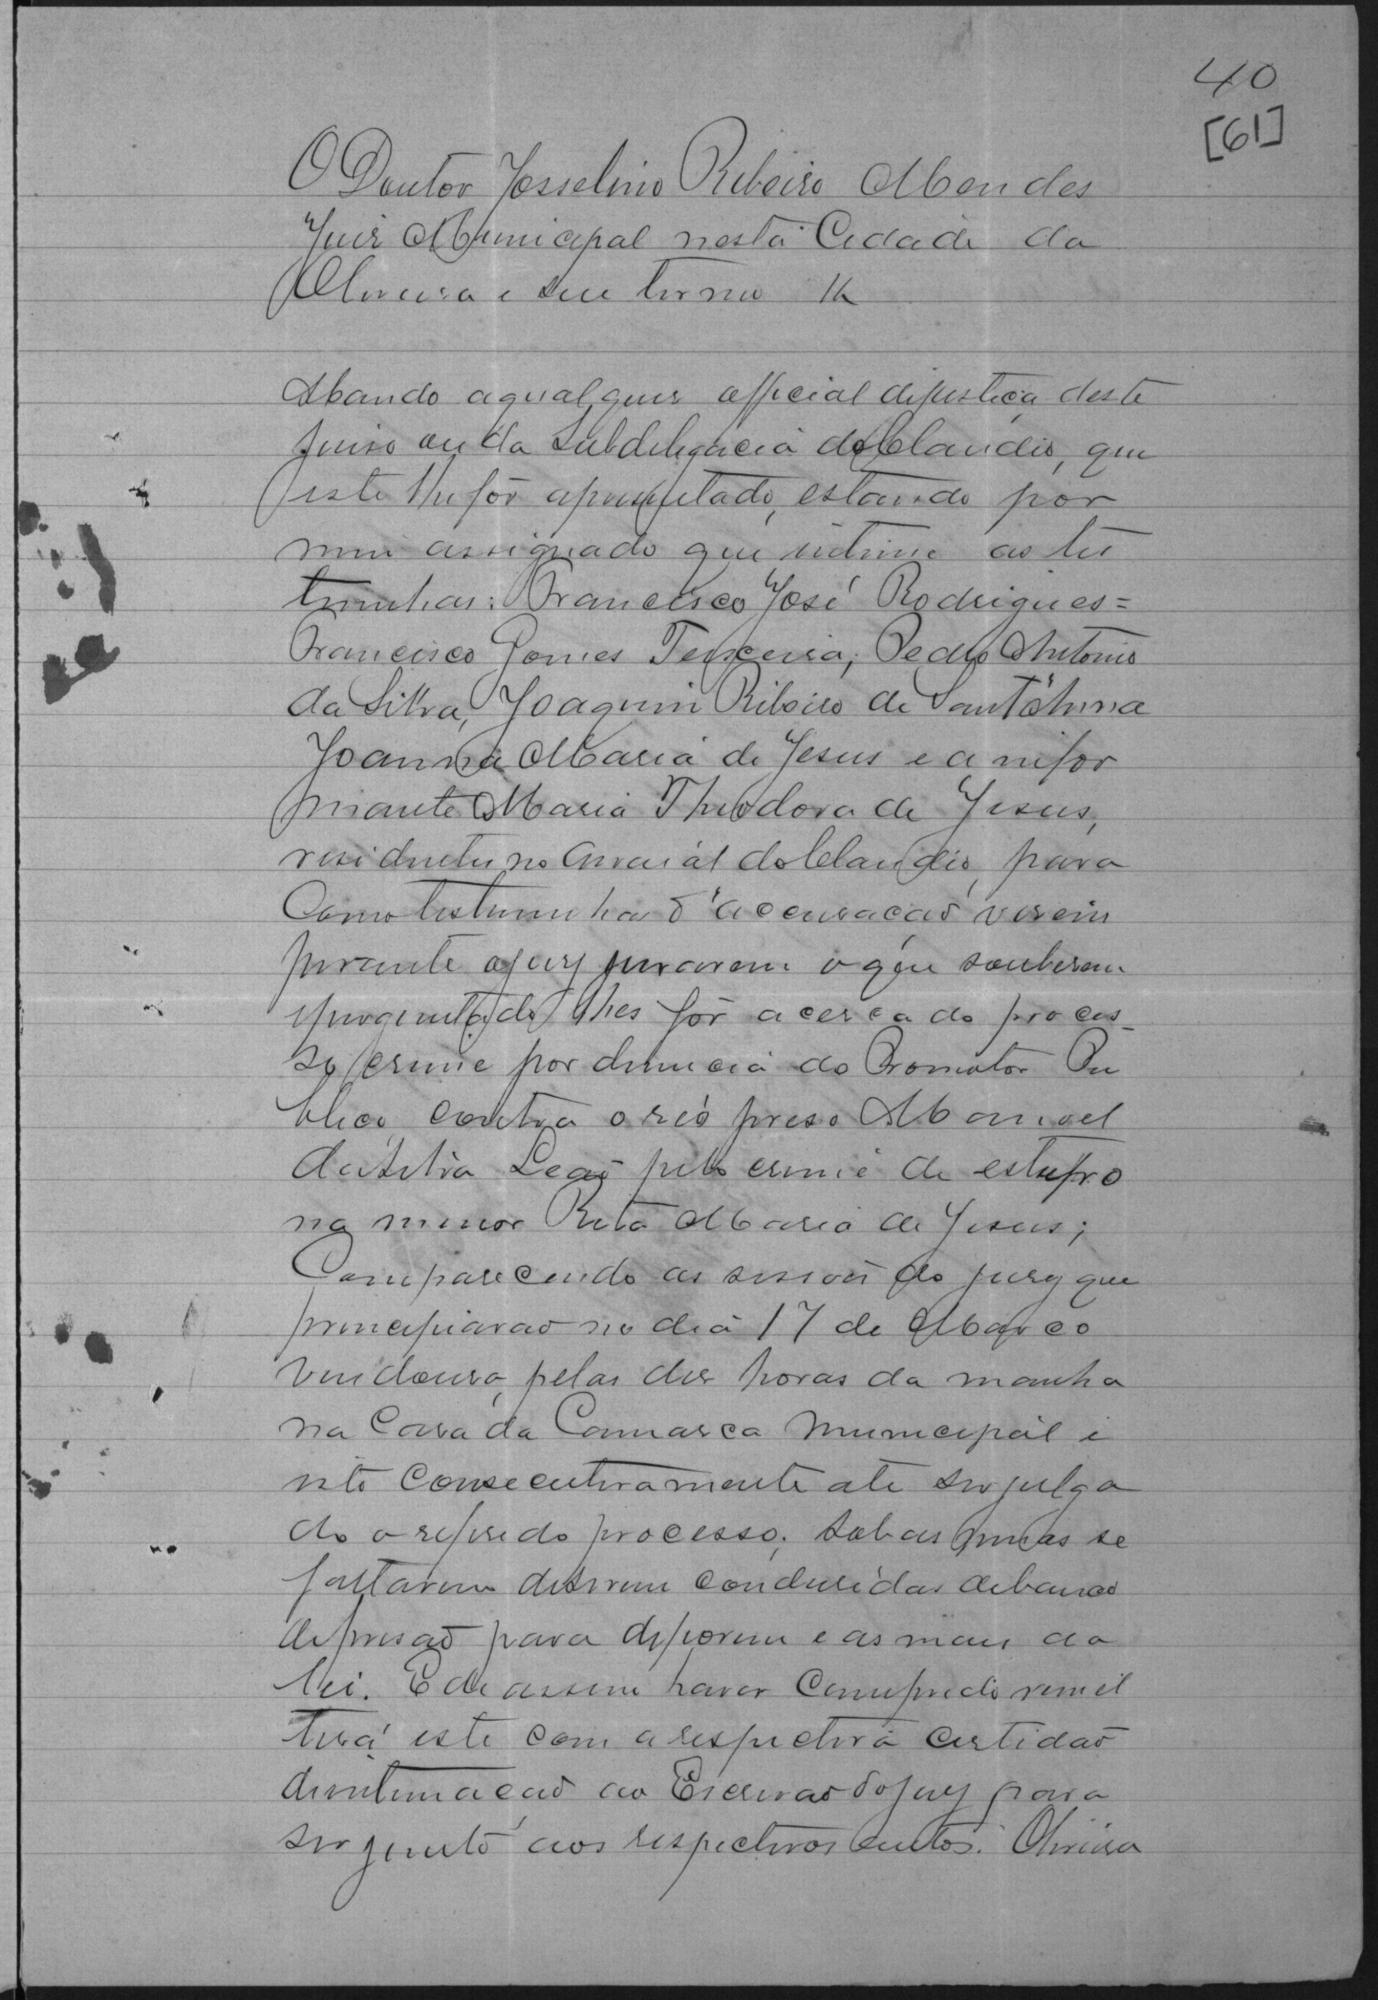 40
[61]
O Doutor Josselino Ribeiro Mendes
Juis Municipal nesta Cidade da
Oliveira e seu termo
Mando a qualquer official dejustiça deste
juiso ou da Subdelegacia do Claudio, que
este lhe fôr apresentado, estando por
mim assignado que intime as tes
temunhas: Francisco José Rodrigues =
Francisco Gomes Teixeira, Pedro Antonio
da Silva, Joaquim Ribeiro de Sant'Anna
Joanna Maria de Jesus e a infor
mante Maria Theodora de Jesus,
residentes no arraial do Claudio, para
Como testemunhas d'accusação virem
perante o jury jurarem o que souberem
e perguntado lhes fôr acerca do proces-
so crime por denuncia do Promotor Pu
blico, contra o reo preso Manoel
da Silva Leão pelo crime de estupro
na menor Rita Maria de Jesus;
Comparecendo as sessoes do jury que
principiarão no dia 17 de Março
vindouro, pelas des horas da manha
na Casa da Camara Municipal e
isto consecutivamente ate ser julga
do o referido processo; sob as penas se
faltarem de serem condusidas debaixo
de prisão para deporem e as mais da
lei. E de assim haver Comprido remet
terá este com a respectiva certidão
de intimação ao Escrivão do jury para
ser junto aos respectivos autos. Oliveira